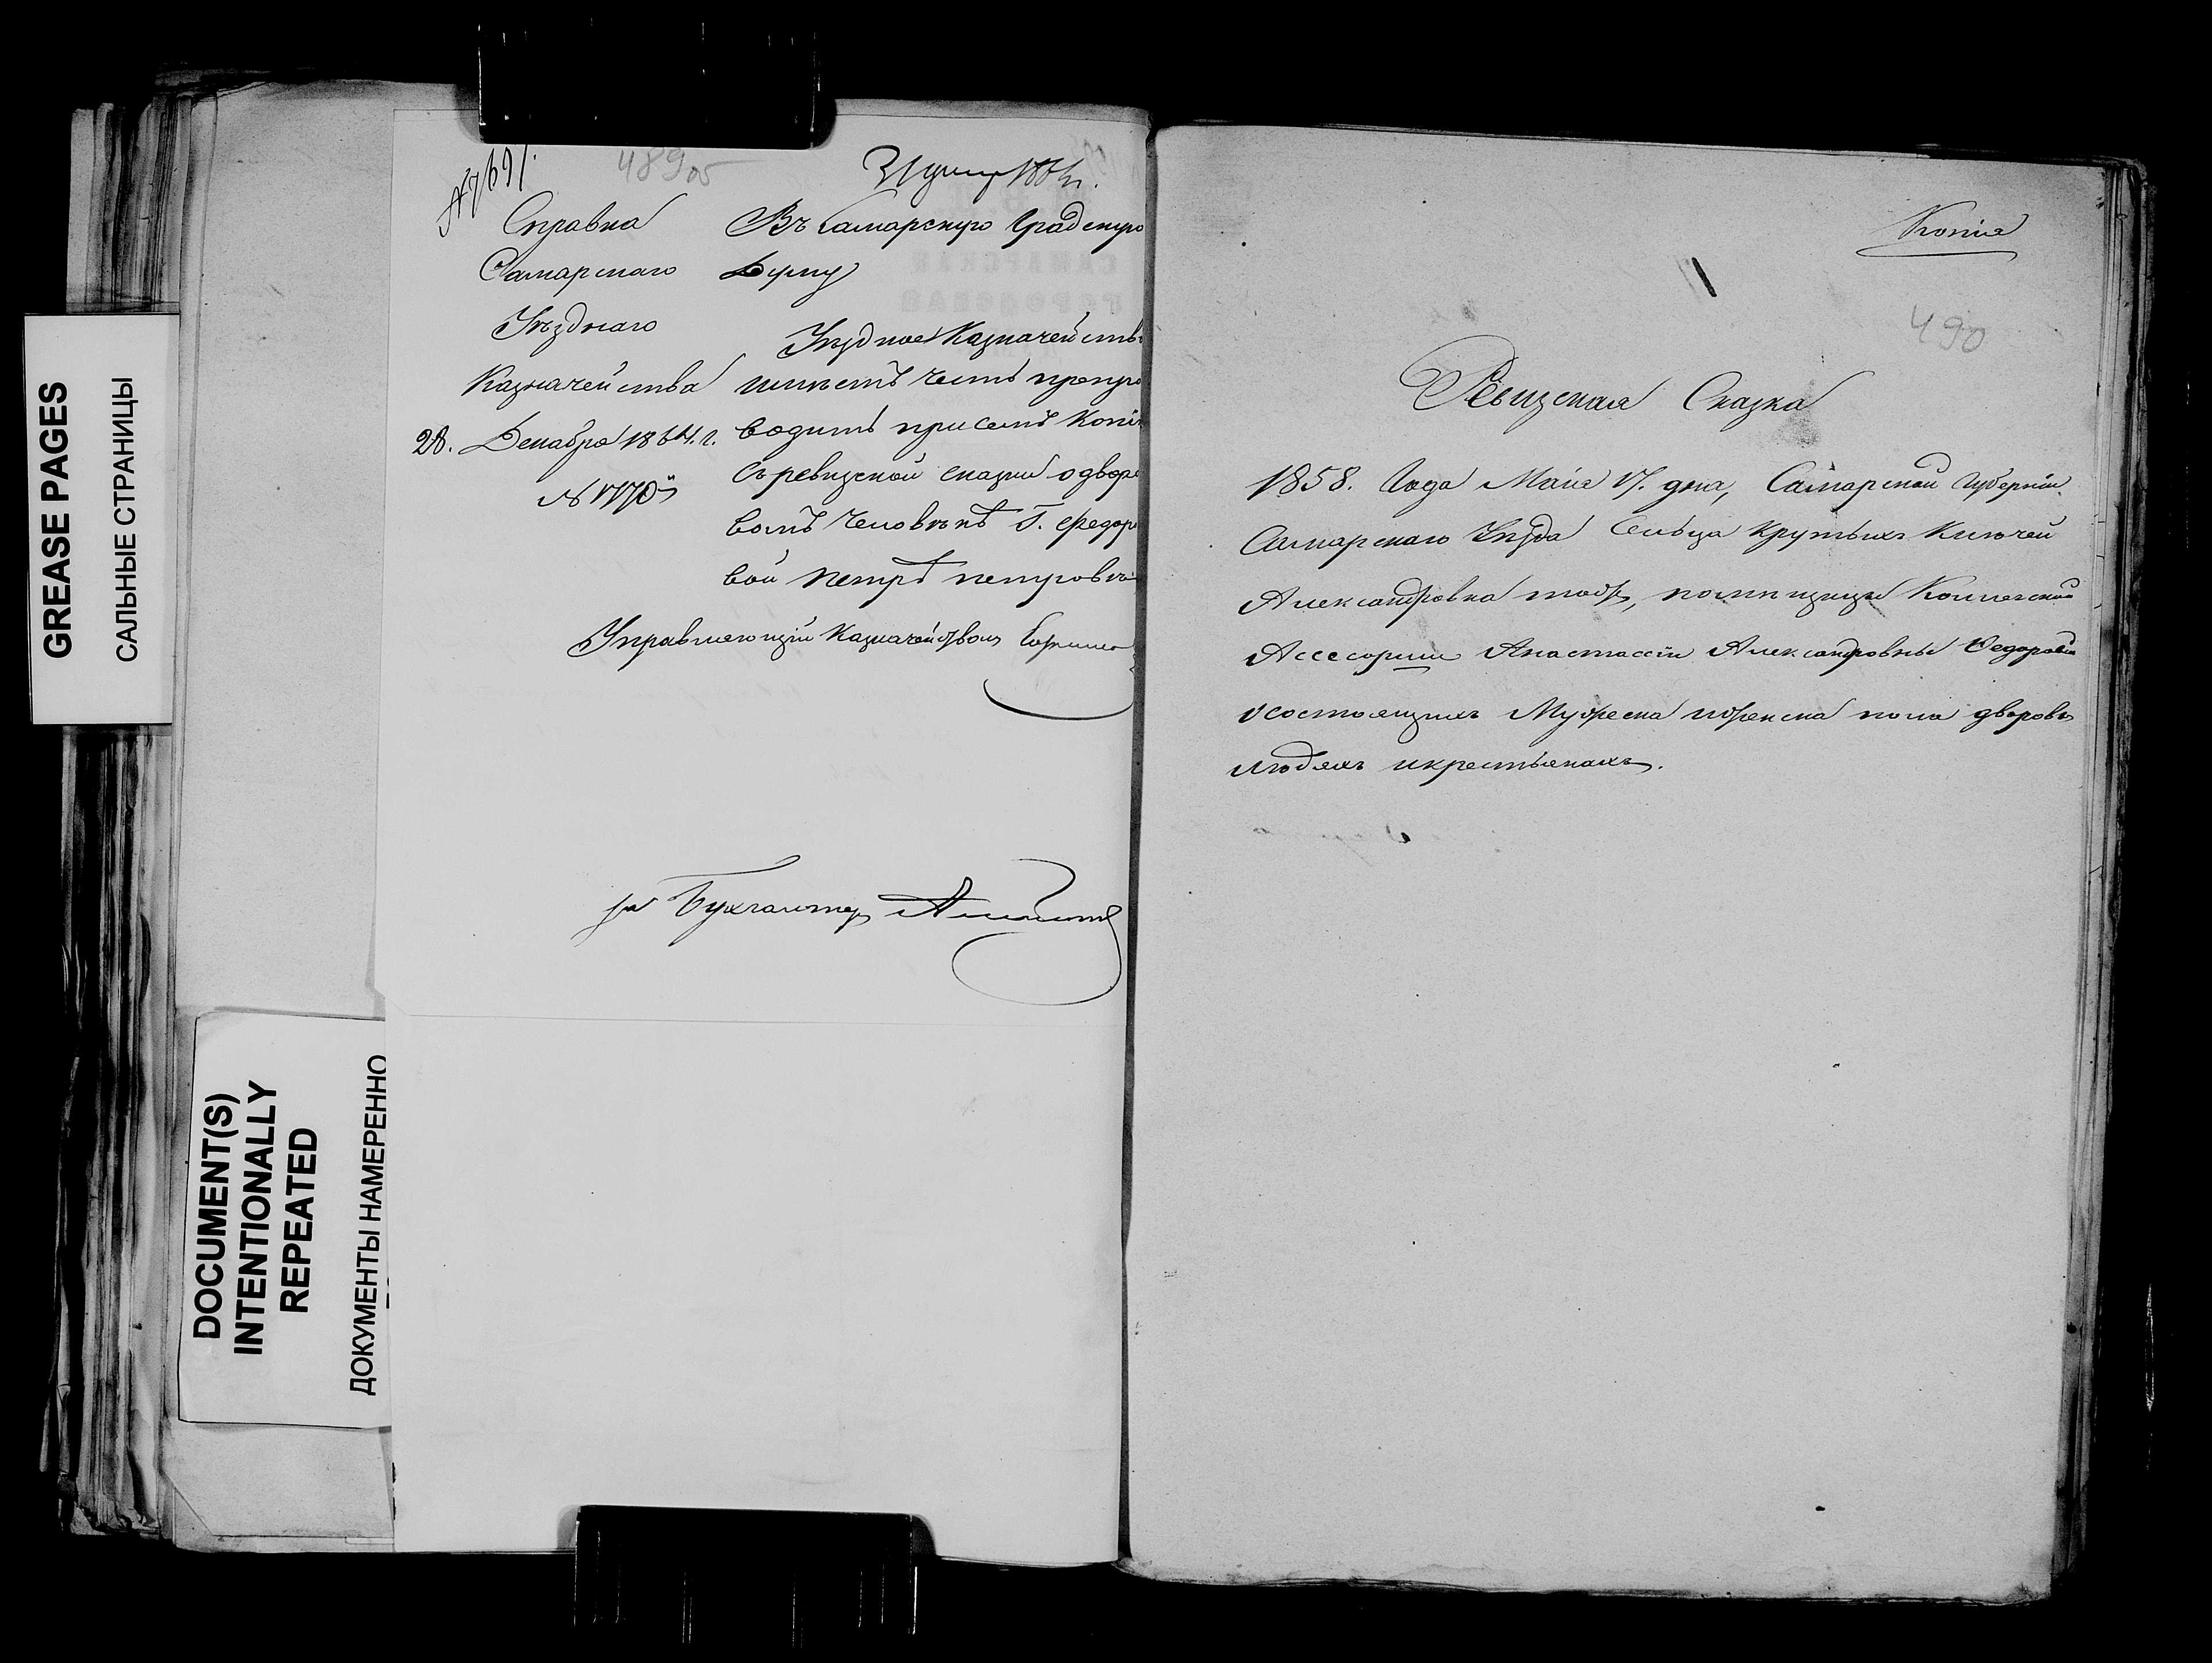 GREASE PAGES
САЛЬНЫЕ СТРАНИЦЫ
DOCUMENT(S)
INTENTIONALLY
REPEATED
ДОКУМЕНТЫ НАМЕРЕННО
№ 7691.
489 об
Справка
Самарскаго
Уѣзднаго
Казначейства
28. Декабря 1864. г.
Въ Самарскую Градскую
Думу
Уѣздное Казначейство
имѣетъ честь препро
водить присемъ копію
съ ревизской сказки о дворо
вомъ человѣкѣ Г. Федоро
вой Петрѣ Петровѣ
Управляющій Казначействомъ
за Бухгалтера
Копія
490
Ревизская Сказка
1858. Года Маія 17. дня, Самарской Губерніи
Самарскаго Уѣзда Сельца Крутыхъ Ключей
Александровка тожъ, помѣщицы Коллежской
Ассесорши Анастассіи Александровны Федоровой
о состоящихъ Мужеска и женска пола дворовыхъ
людяхъ и крестьянахъ.